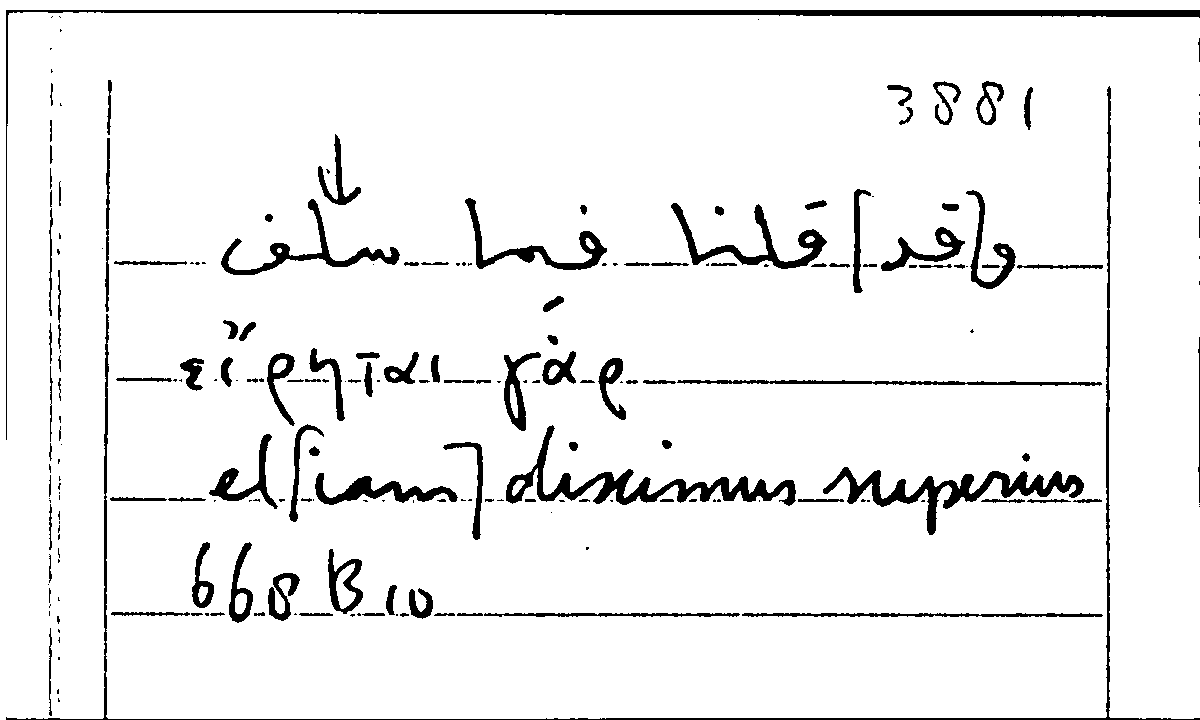 3881
↓
و[قد] قلنا فيما سلف
εἴρηται γάρ
et [iam] diximus superius
668 B 10